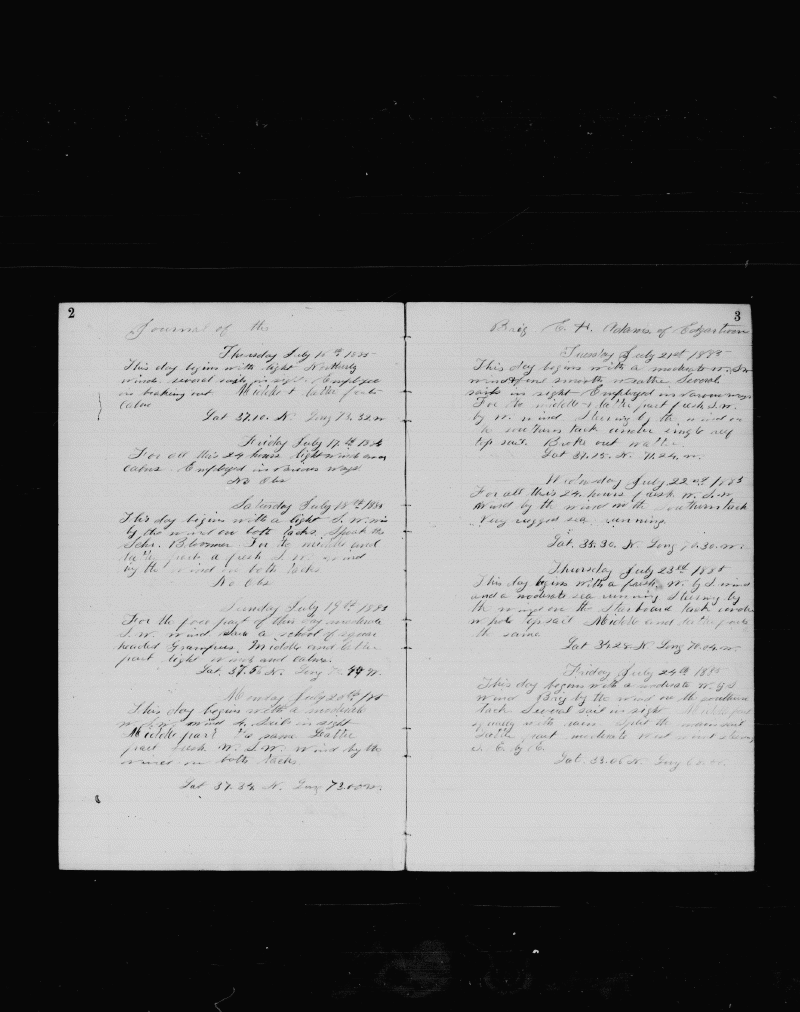 2
Journal of the
Thursday July 16th 1885
This day begins with light Northerly
winds. several sails in sight. Employed
in braking out Middle & latter parts
Calm
Lat 37.10. N. Long 73.32. W
Friday July 17th 1885
For all this 24 hours light winds and
Calms. Employed in various ways
No Obs
Saturday July 18th 1885
This day begins with a light S.W. wind
by the wind on both tacks. Speak the
Schr. Bloomer. For the middle and
latter parts a fresh S.W. wind
by the wind on both tacks
No Obs
Sunday July 19th 1885
For the fore part of this day moderate
S.W. wind saw a school of square
headed Grampuses. Middle and latter
part light winds and calms.
Lat. 37.5 N. Long W.
Monday July 20th
This day begins with a moderate
wind 4 Sails in sight
Middle part the same Latter
part fresh W.S.W. wind by the
wind on both tacks.
Lat 37.34 N. Long 73.00 W.
3
Braig E. H. Adams of Edgartown
Tuesday July 21st 1885
This day begins with a moderate W.S.W.
wind and smooth weather. Several
sails in sight. Employed in various ways
For the middle & latter part fresh S.W.
by W. wind Steering by the wind on
the southern tack under single reef
top sail. Broke out water.
Lat 37.15. N. 71.24. W.
Wednesday July 22nd 1885
For all this 24 hours fresh W.S.W.
Wind by the wind on the southern tack
Very rugged sea running.
Lat. 35.30. N. Long 70.30. W.
Thursday July 23rd 1885
This day begins with a fresh W. by S. wind
and a moderate sea running Steering by
the wind on the Starboard tack under
whole topsail Middle and latter parts
the same
Lat 34.28 N. Long 70.04. W.
Friday July 24th 1885
This day begins with a moderate W. by S.
wind Brig by the wind on the southern
tack Several sail in sight Middle part
squally with rain Split the mainsail
Latter part moderate West wind steering
S. E. by E.
Lat. 33.06 N. Long